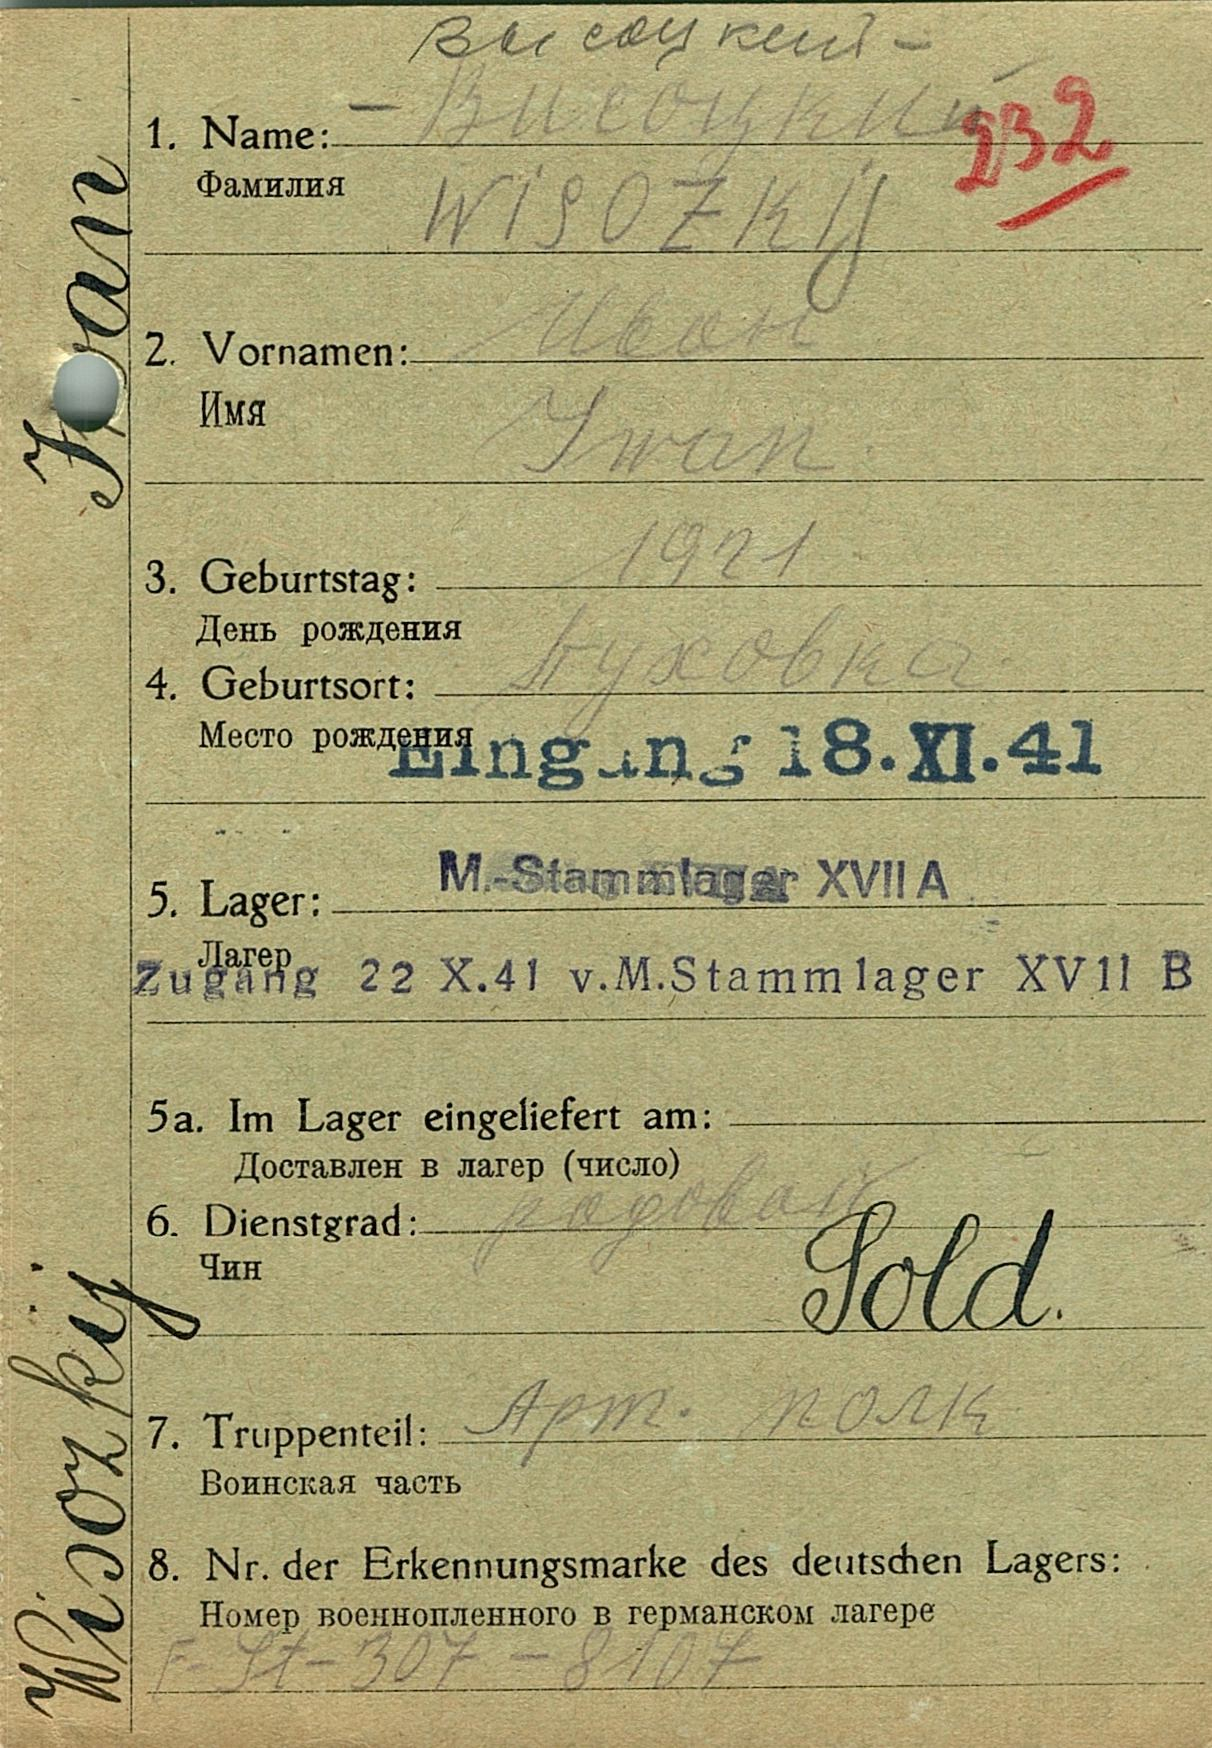 Высоцкий -
- Висоцкий
1. Name:
232
Фамилия
WISOZKIJ
Иван
2. Vornamen:
Имя
Iwan
1921
3. Geburtstag:
День рождения
4. Geburtsort:
Место рождения
Eingang 18.XI.41
M.-Stammlager XVII A
5. Lager:
Лагер
Zugang 22 X.41 v.M.Stammlager XVII B
5a. Im Lager eingeliefert am:
Доставлен в лагер (число)
6. Dienstgrad: рядовой
Чин
Sold.
7. Truppenteil: Арт. полк
Воинская часть
8. Nr. der Erkennungsmarke des deutschen Lagers:
Номер военнопленного в германском лагере
F-St-307-8107
Wisozkij Iwan